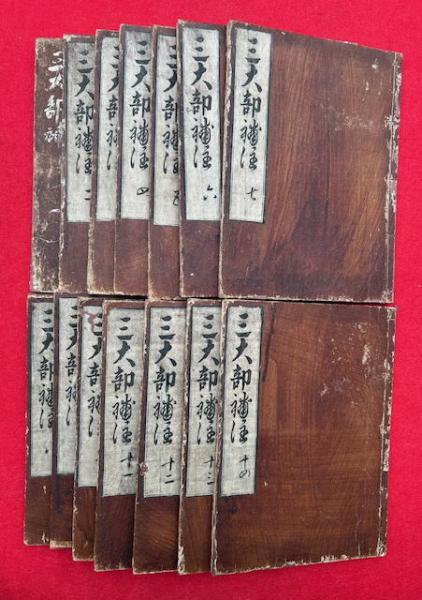 三大部補
三大部補注 二
三大部補注
三大部補注 四
三大部補注 五
三大部補注 六
三大部補注 七
三大部補注
三大部補
三大部補
三大部補注 十一
三大部補注 十二
三大部補注 十三
三大部補注 十四